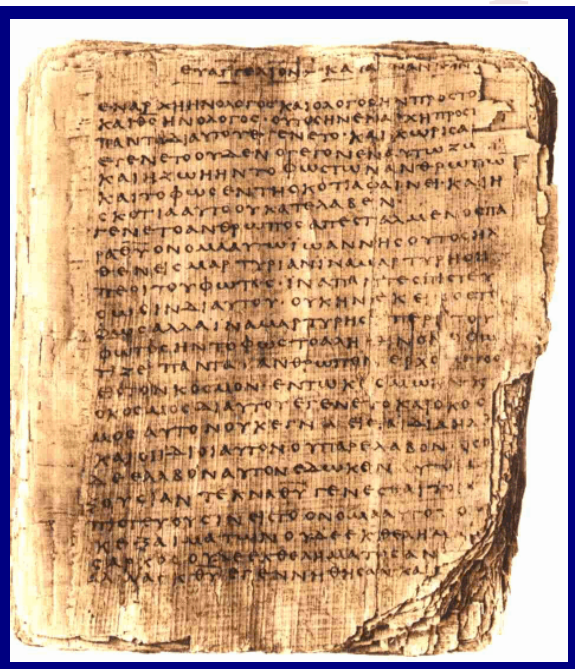 ΕΥΑΓΓΕΛΙΟΝ ΚΑΤΑ
ΕΝΑΡΧΗΗΝΟΛΟΓΟϹΚΑΙΟΛΟΓΟϹΗΝΠΡΟϹΤΟ
ΚΑΙΘϹΗΝΟΛΟΓΟϹ·ΟΥΤΟϹΗΝΕΝΑΡΧΗΠΡΟϹ
ΠΑΝΤΑΔΙΑΥΤΟΥΕΓΕΝΕΤΟ·ΚΑΙΧΩΡΙϹΑ
ΕΓΕΝΕΤΟΟΥΔΕΝΟΓΕΓΟΝΕΝΕΝΑΥΤΩΖΩ
ΚΑΙΗΖΩΗΗΝΤΟΦΩϹΤΩΝΑΝΘΡΩΠΩ
ΚΑΙΤΟΦΩϹΕΝΤΗϹΚΟΤΙΑΦΑΙΝΕΙ·ΚΑΙΗ
ϹΚΟΤΙΑΑΥΤΟΟΥΚΑΤΕΛΑΒΕΝ
ΕΓΕΝΕΤΟΑΝΘΡΩΠΟϹΑΠΕϹΤΑΛΜΕΝΟϹΠΑ
ΡΑΘΥΟΝΟΜΑΑΥΤΩΙΩΑΝΝΗϹΟΥΤΟϹΗΛ
ΘΕΝΕΙϹΜΑΡΤΥΡΙΑΝΙΝΑΜΑΡΤΥΡΗϹΗ
ΠΕΡΙΤΟΥΦΩΤΟϹ·ΙΝΑΠΑΝΤΕϹΠΙϹΤΕΥ
ϹΩϹΙΝΔΙΑΥΤΟΥ·ΟΥΚΗΝΕΚΕΙΝΟϹ
ΦΩϹΑΛΛΑΙΝΑΜΑΡΤΥΡΗϹΗΠΕΡΙΤΟΥ
ΦΩΤΟϹΗΝΤΟΦΩϹΤΟΑΛΗΘΙΝΟΝΟΦΩ
ΤΙΖΕΙΠΑΝΤΑΑΝΘΡΩΠΟΝΕΡΧΟΜΕΝΟΝ
ΕΙϹΤΟΝΚΟϹΜΟΝ·ΕΝΤΩΚΟϹΜΩΗΝΚ
ΟΚΟϹΜΟϹΔΙΑΥΤΟΥΕΓΕΝΕΤΟΚΑΙΟΚΟϹ
ΜΟϹΑΥΤΟΝΟΥΚΕΓΝΩΕΙϹΤΑΙΔΙΑΗΛ
ΚΑΙΟΙΙΔΙΟΙΑΥΤΟΝΟΥΠΑΡΕΛΑΒΟΝΟϹΟΙ
ΔΕΕΛΑΒΟΝΑΥΤΟΝΕΔΩΚΕΝΑΥΤΟΙ
ΟΥϹΙΑΝΤΕΚΝΑΘΥΓΕΝΕϹΘΑΙΤΟΙϹ
ΠΙϹΤΕΥΟΥϹΙΝΕΙϹΤΟΟΝΟΜΑΑΥΤΟΥΟ
ΚΕΞΑΙΜΑΤΩΝΟΥΔΕΕΚΘΕΛΗΜ
ϹΑΡΚΟϹΟΥΔΕΕΚΘΕΛΗΜΑΤΟϹΑΝ
ΑΛΛΑΕΚΘΥΕΓΕΝΝΗΘΗϹΑΝΚΑΙ